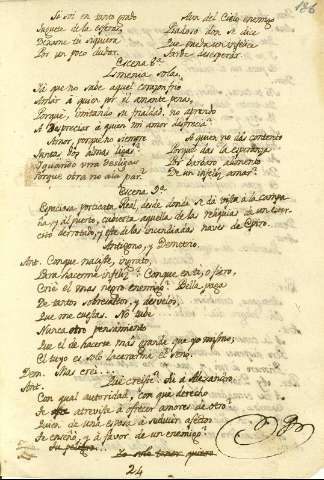 136
Si en tu en tanto grado
Juguete de la esfera,
Dexame tu siquiera
Por un poco dudar.
Aun del Cielo enemigo
Piadoso don se dice
Que pueda un infelice
Sin desesperar.
Escena 8ª
Ismenia sola.
Ya que no sabe aquel corazon frio
Amar à quien por él amante pena,
Porque, imitando su frialdad, no aprendo
A despreciar à quien mi amor desprecia?
Amor, porque no siempre
Juntas dos almas ligas?
Porque obra no a la par?
A quien no das contento
Porque das la esperanza
Por barbaro alimento
De un infeliz amar?
Escena 9ª
Espaciosa porticata Real, desde donde se dá vista à la campa-
ña, y al puerto, cubierta aquella de las reliquias de un exer-
cito derrotado, y este de las incendiadas naves de Epiro.
Antigono, y Demetrio.
Ant. Conque naciste, ingrato,
Para hacerme infeliz? Conque en ti, o fiero,
Crié el mas negro enemigo? Bella paga
De tantos sobresaltos, y desvelos,
Que me cuestas. No tube
Nunca otro pensamiento
Que el de hacerte más grande que yo mismo;
El tuyo es solo lacerarme el seno.
Dem. Mas crei . . .
Ant. Que creiste? Tu à Alexandro
Con qual autoridad, con que derecho
Te atreviste à ofrecer amores de otro?
Quien de una esposa à seducir afectos
Te enseñó, y à favor de un enemigo?
Su peligro.
24